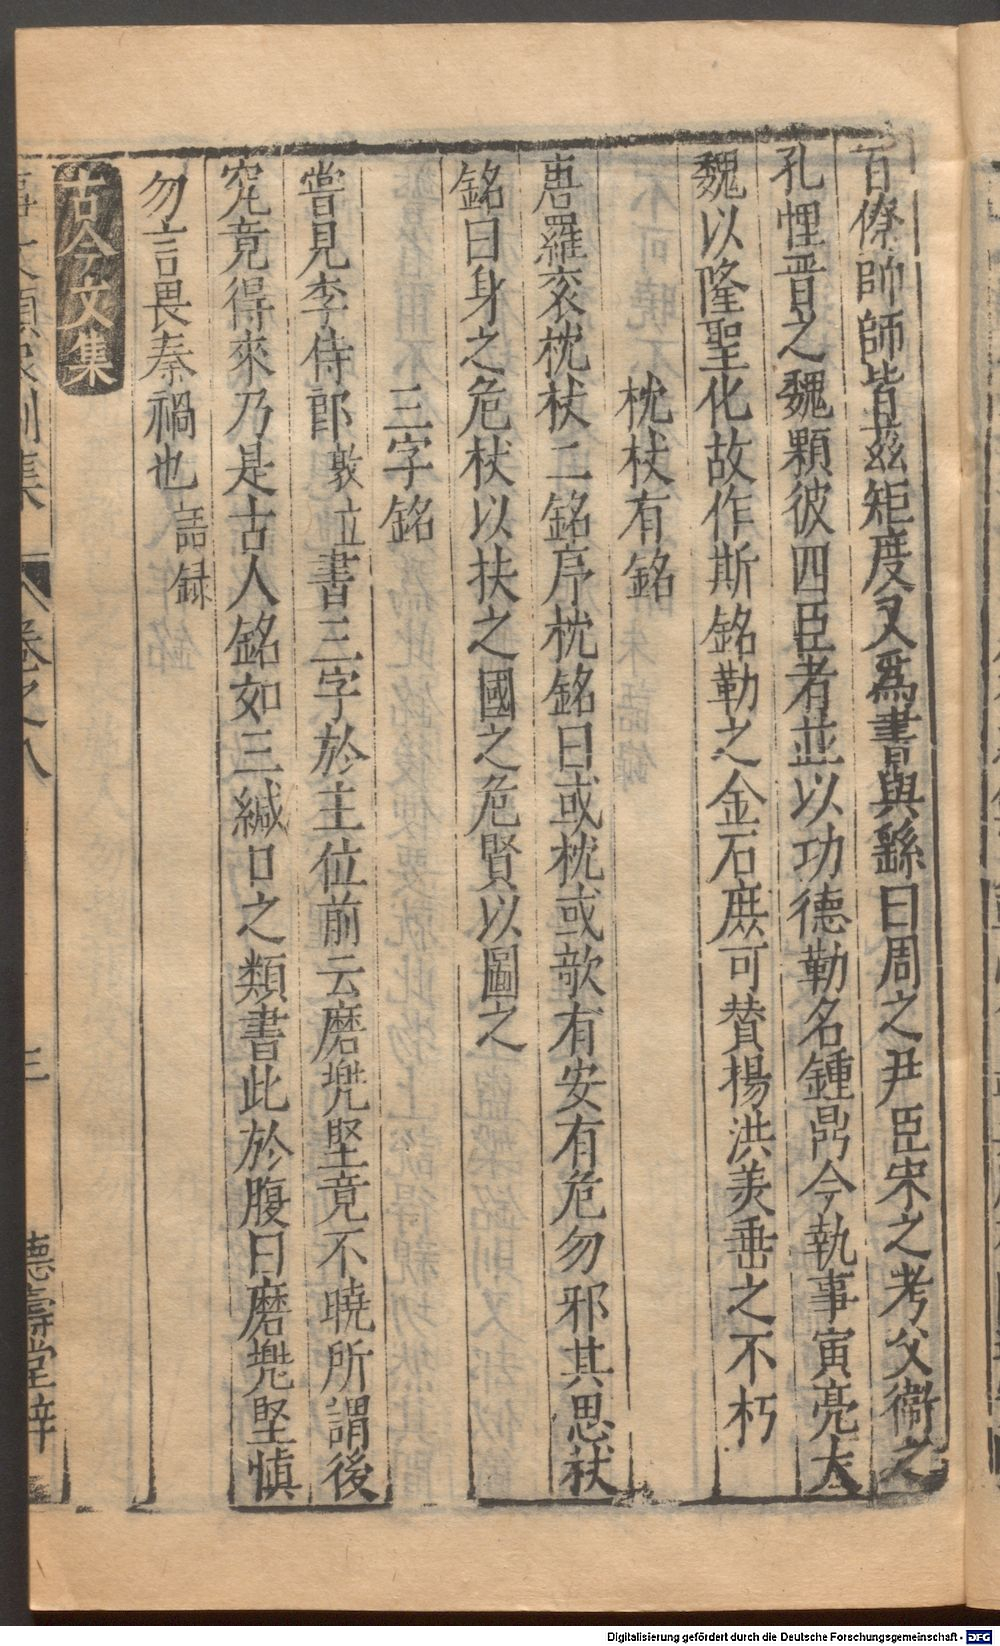 百僚師師皆玆矩度又爲書與繇曰周之尹臣宋之考父衞之
孔悝晋之魏顆彼四臣者並以功德勒名鍾鼎今執事寅亮大
魏以隆聖化故作斯銘勒之金石庶可賛揚洪美垂之不朽
枕杖有銘
唐羅衮枕杖二銘序枕銘曰或枕或欹有安有危勿邪其思杖
銘曰身之危杖以扶之國之危賢以圖之
三字銘
嘗見李侍郎敦立書三字於主位前云磨兠堅竟不曉所謂後
究竟得來乃是古人銘如三緘口之類書此於腹曰磨兠堅慎
勿言畏秦禍也語録
古今文集
卷之八
三
德壽堂梓
Digitalisierung gefördert durch die Deutsche Forschungsgemeinschaft - DFG